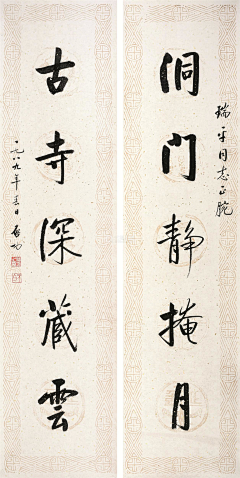 瑞平同志正腕
洞门静掩月
古寺深藏雲
一九八九年春日 启功